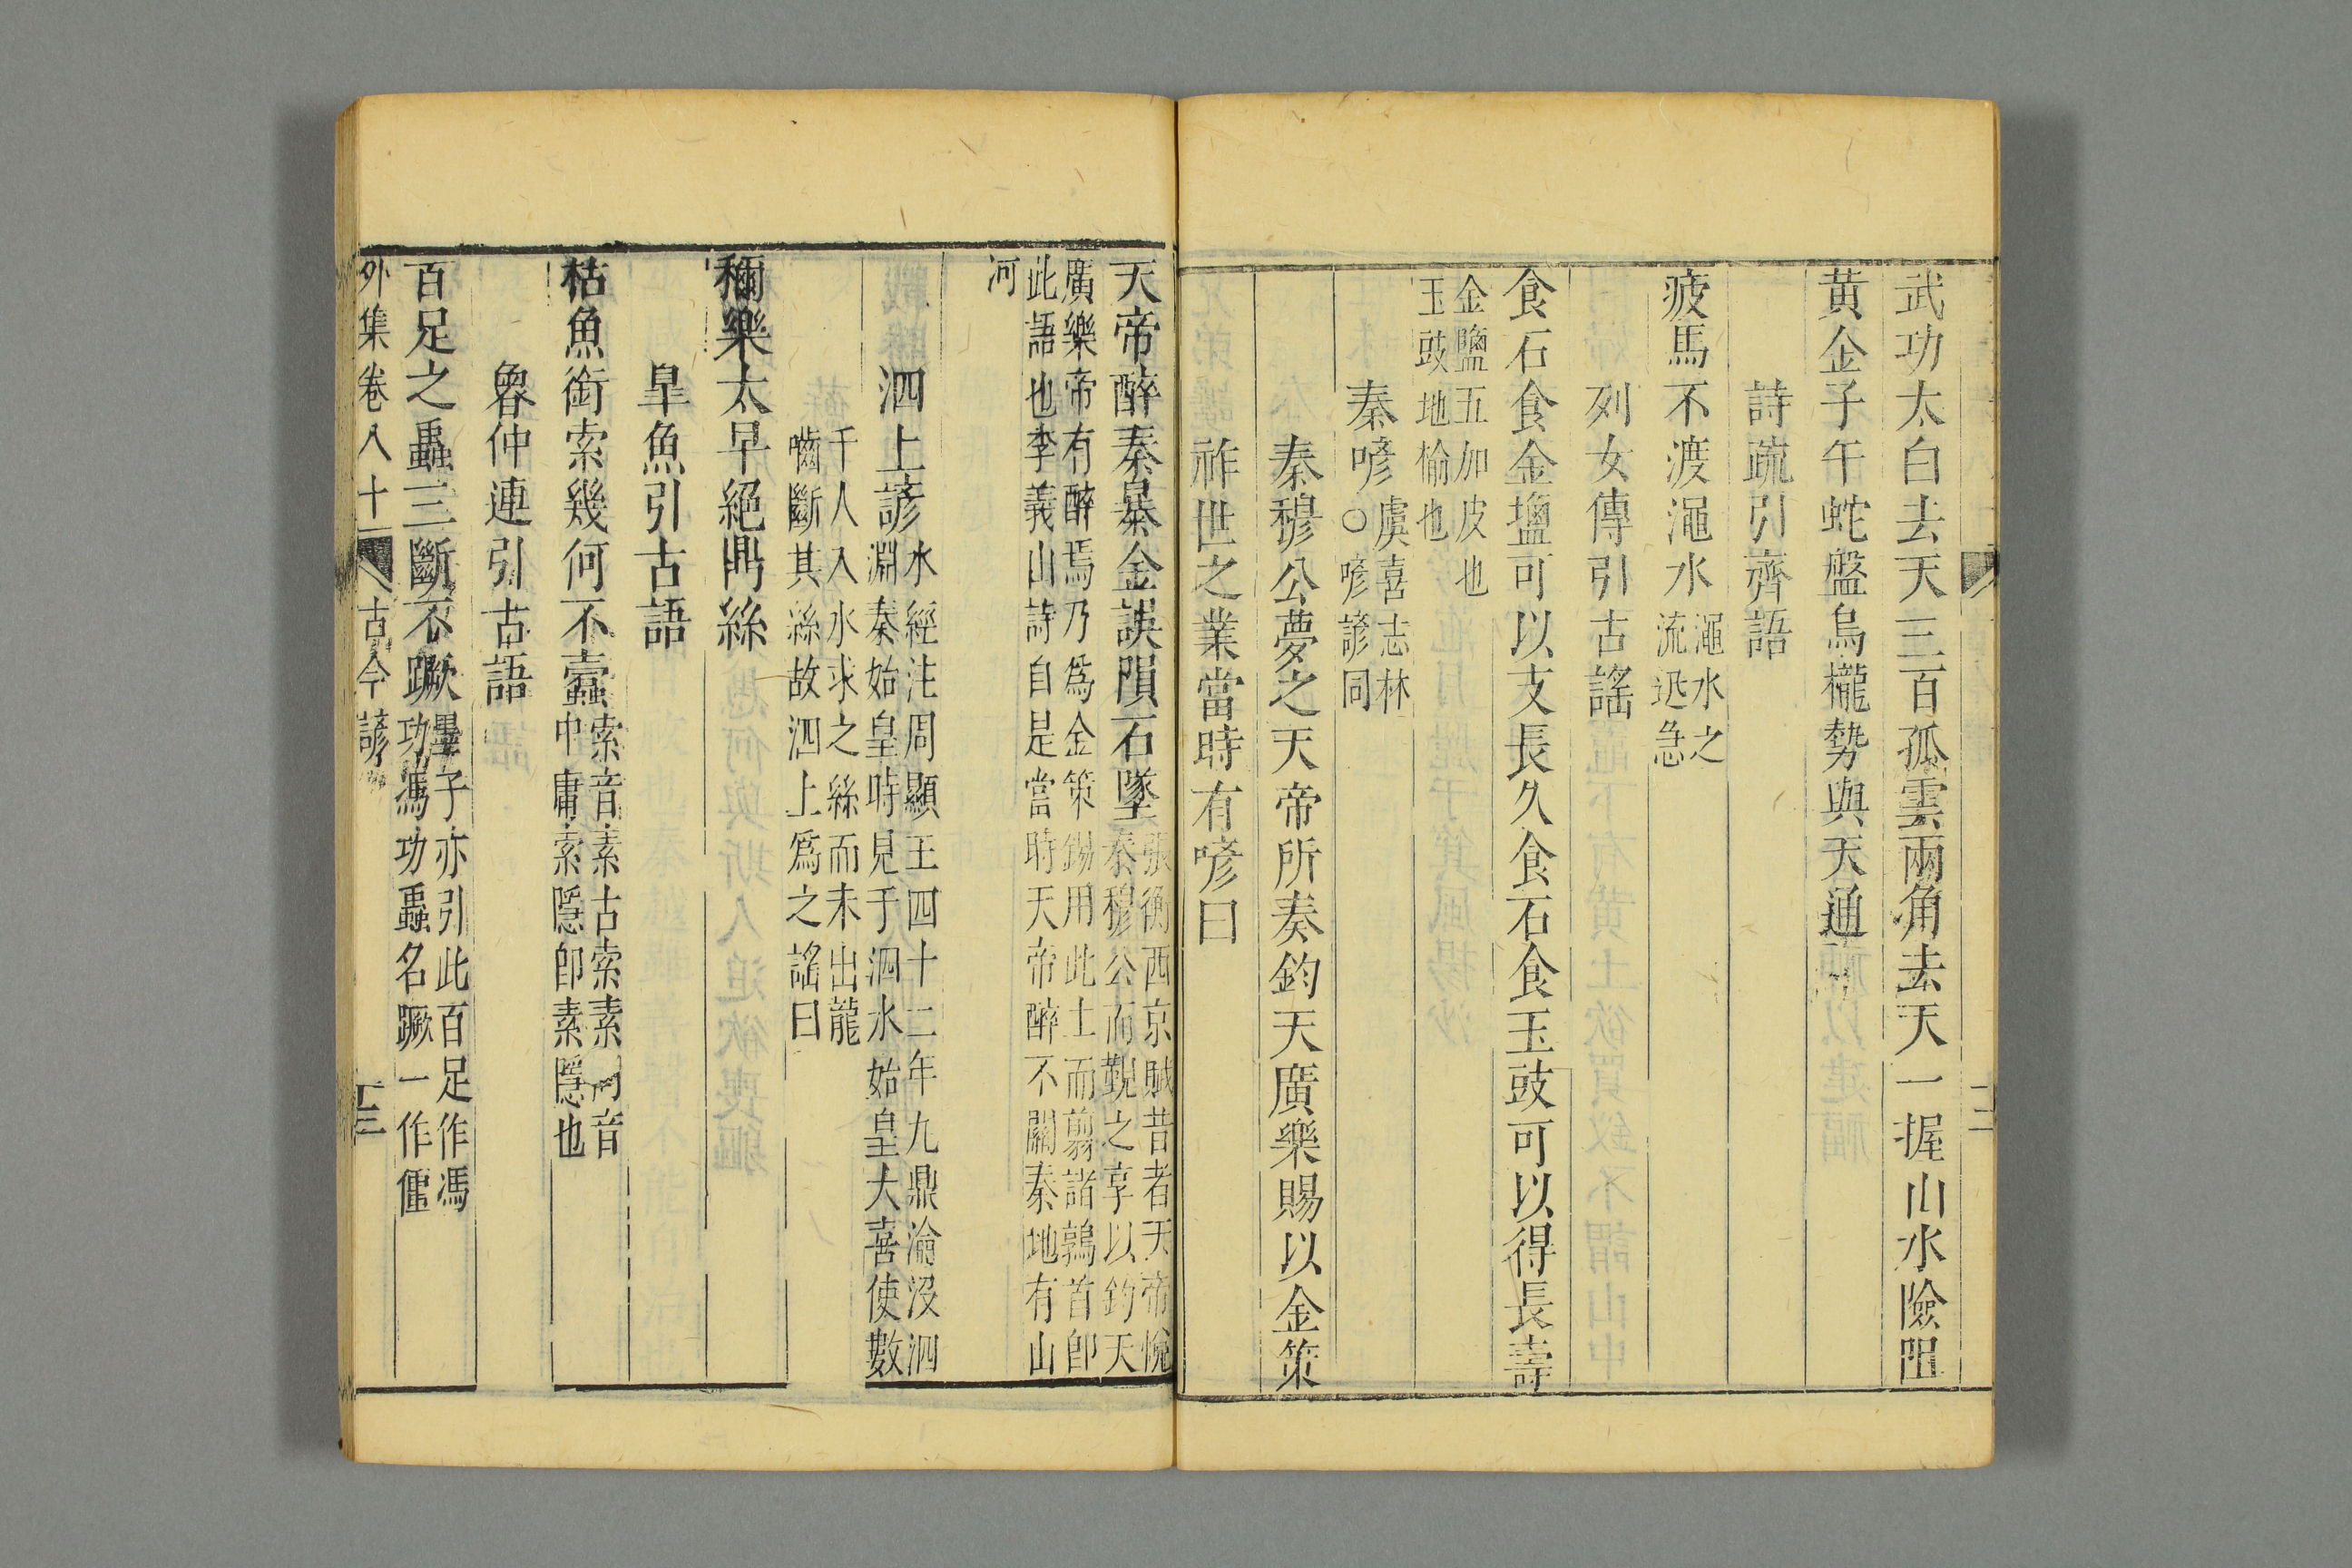 武功太白去天三百孤雲兩角去天一握山水險阻
黃金子午蛇盤烏櫳勢與天通
詩疏引齊語
疲馬不渡澠水
澠水之
流迅急
列女傳引古謠
食石食金鹽可以支長久食石食玉豉可以得長壽
金鹽五加皮也
玉豉地榆也
秦喭
虞喜志林
○喭諺同
秦穆公夢之天帝所奏鈞天廣樂賜以金策
祚世之業當時有喭曰
天帝醉秦暴金誤隕石墜
張衡西京賦昔者天帝悅
秦穆公而覲之享以鈞天
廣樂帝有醉焉乃為金策錫用此土而翦諸鶉首卽
此語也李義山詩自是當時天帝醉不關秦地有山
河
泗上諺
水經注周顯王四十二年九鼎淪沒泗
淵秦始皇時見于泗水始皇大喜使數
千人入水求之絲而未出龍
嚙斷其絲故泗上爲之謠曰
稱樂太早絕鼎絲
臯魚引古語
枯魚銜索幾何不蠹
索音素古索素同音
中庸索隱卽素隱也
魯仲連引古語
百足之蟲三斷不蹶
墨子亦引此百足作馮
功馮功蟲名蹶一作僵
外集卷八十一
古今諺
十三